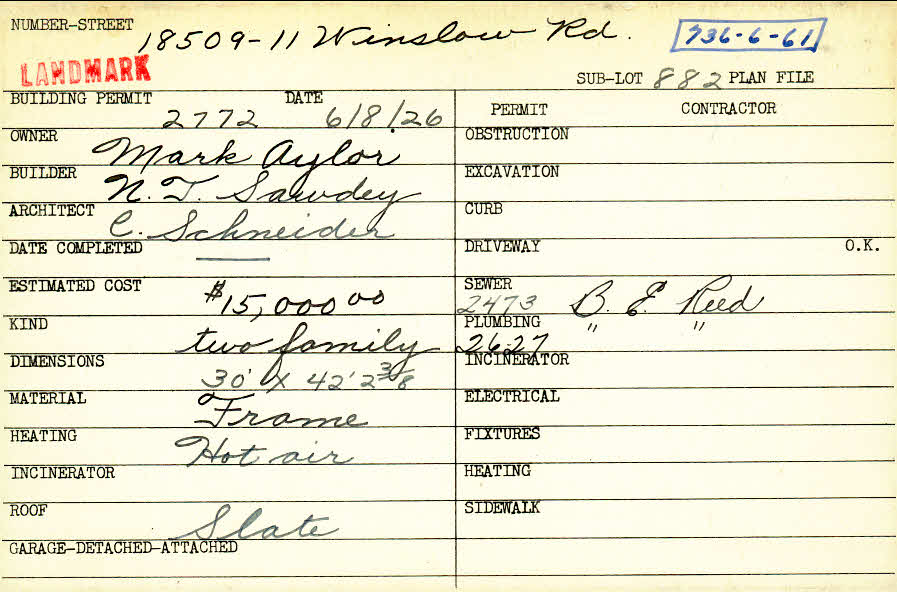 NUMBER-STREET 18509-11 Winslow Rd. 736-6-61
LANDMARK
SUB-LOT 882 PLAN FILE
BUILDING PERMIT 2772 DATE 6/8/26
OWNER Mark Aylor
BUILDER N. T. Sawdey
ARCHITECT C. Schneider
DATE COMPLETED ——
ESTIMATED COST $15,000 00
KIND two family
DIMENSIONS 30' X 42' 2 3/8
MATERIAL Frame
HEATING Hot air
INCINERATOR
ROOF Slate
GARAGE-DETACHED-ATTACHED
PERMIT CONTRACTOR
OBSTRUCTION
EXCAVATION
CURB
DRIVEWAY O.K.
SEWER 2473 B. E. Reed
PLUMBING 2627 " "
INCINERATOR
ELECTRICAL
FIXTURES
HEATING
SIDEWALK